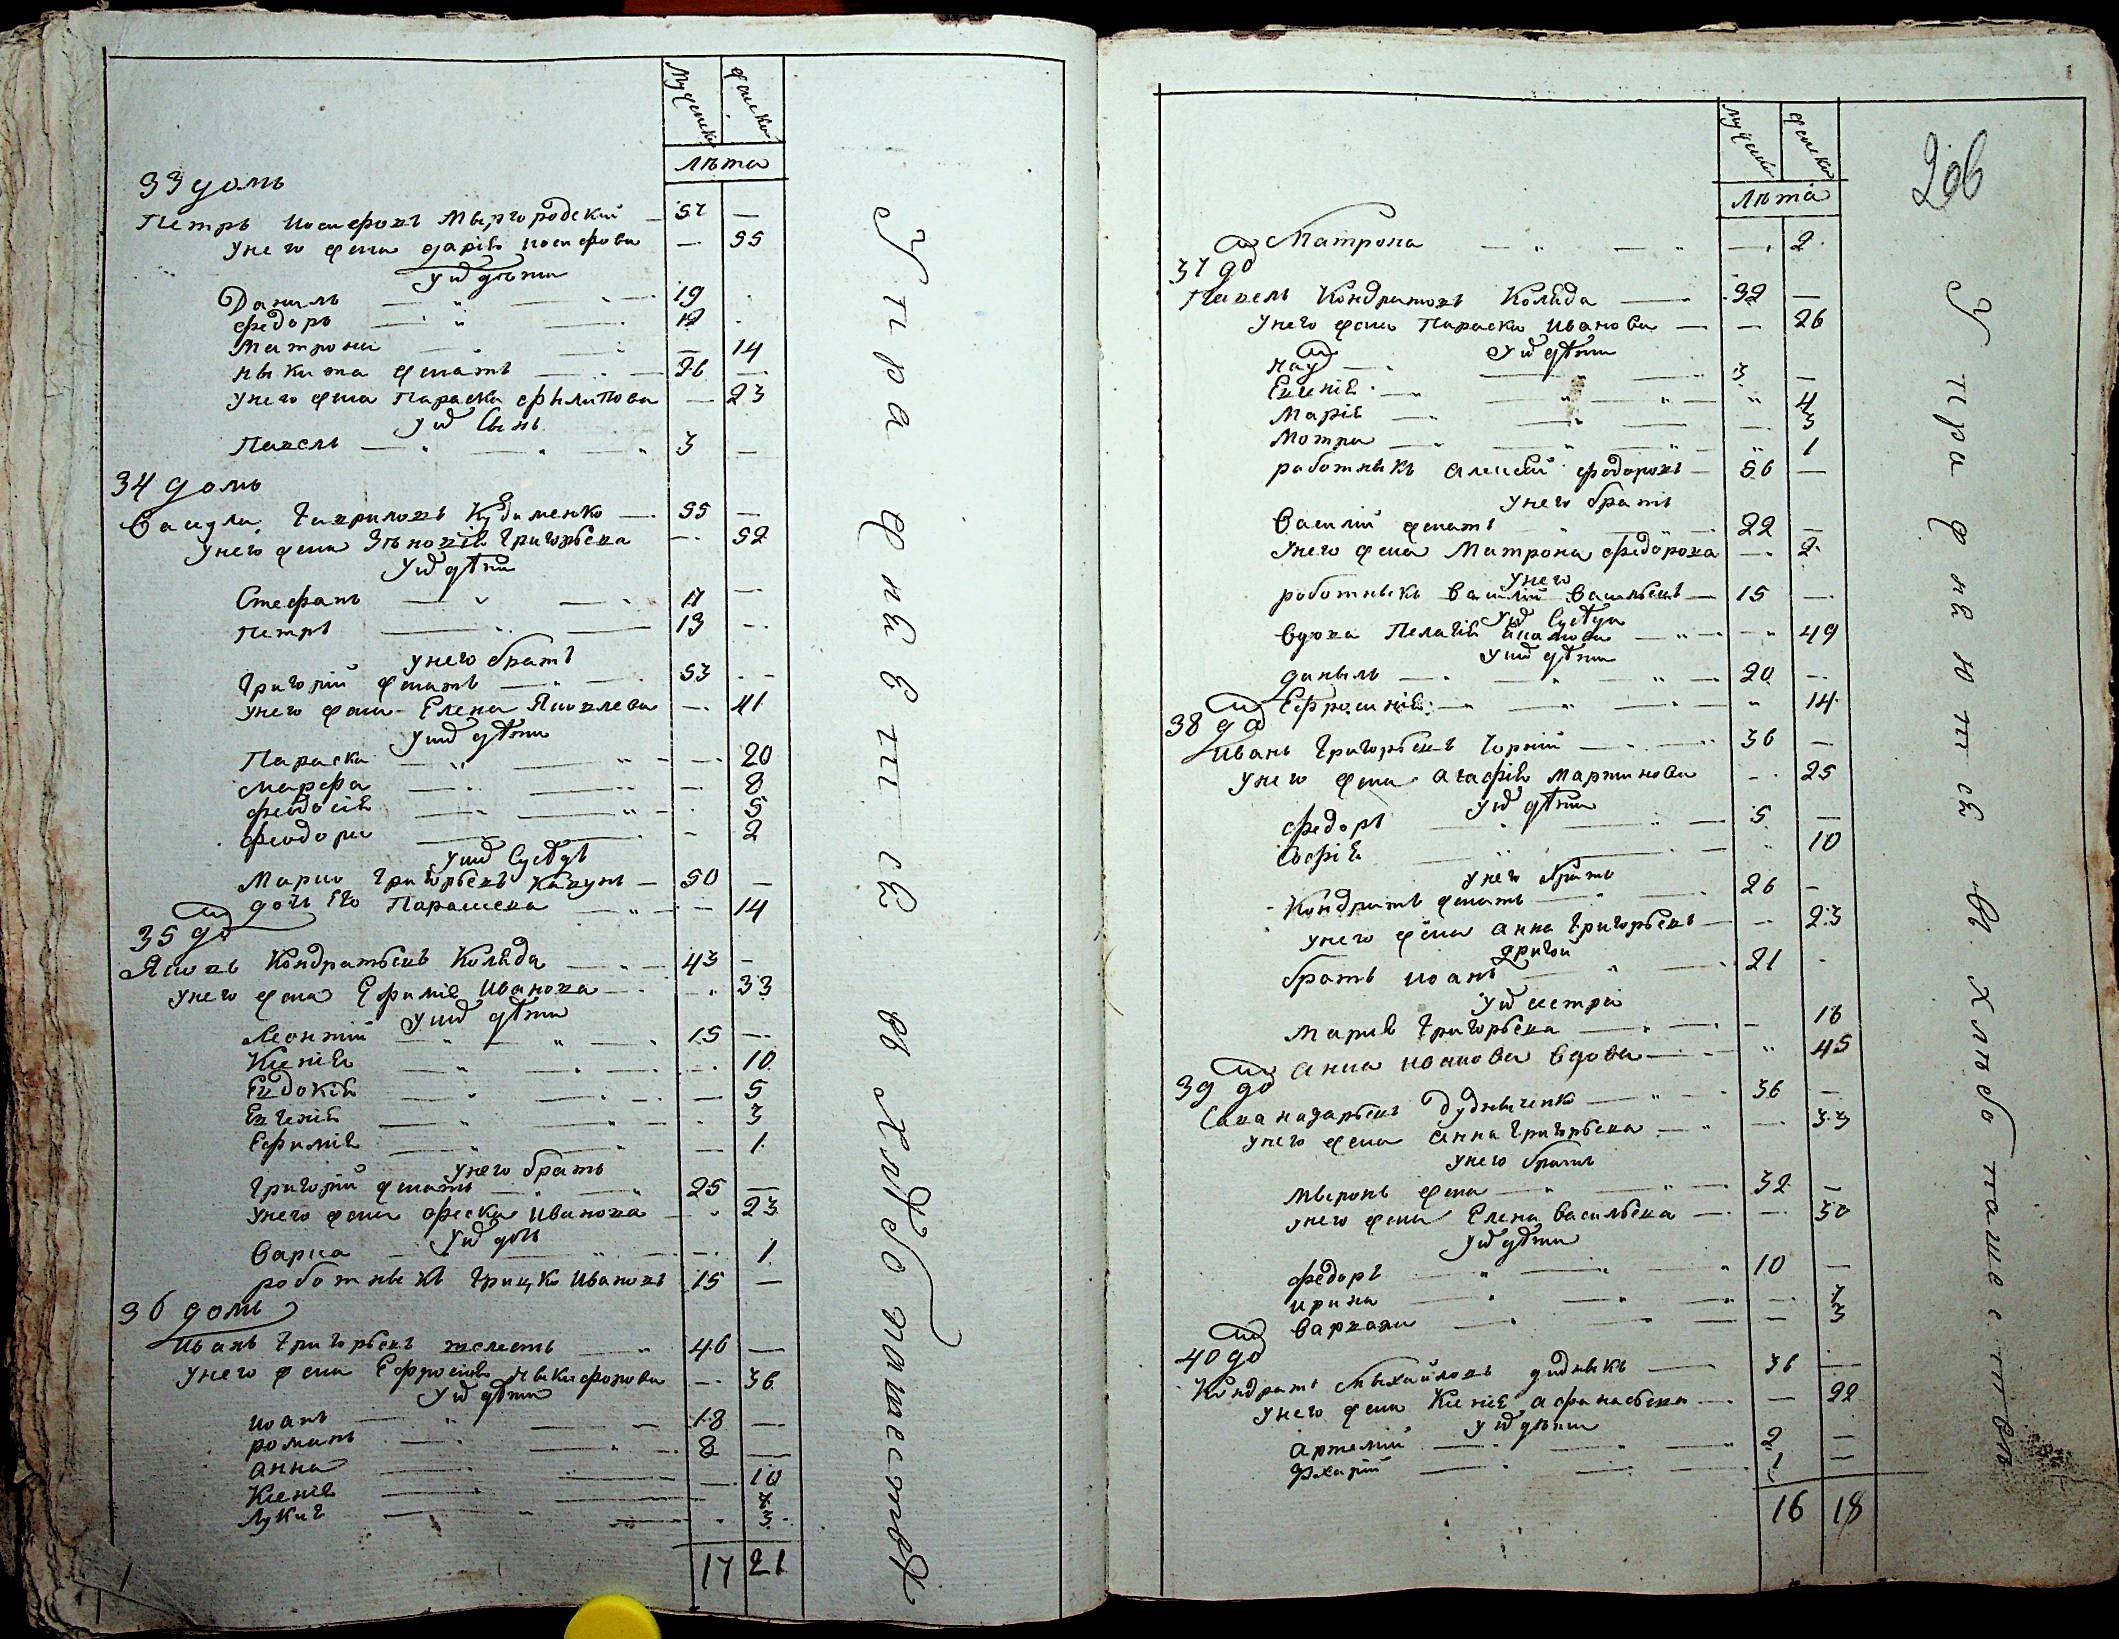 лѣта
33 домъ
Петръ Иосифовъ Мыргородский — 57 —
У него жена Дарія Иосифова — 55
У их дѣти
Данилъ — 19
Федоръ — 12
Матрона — 14
Никита женатъ — 26 —
У него жена Параска Филипова — 23
У их сынъ
Павелъ — 3 —
34 домъ
Гавриловъ — 55 —
У него жена Зѣновія Григорьева — 52
У их дѣти
Стефанъ — 17 —
Петръ — 13 —
У него братъ
Григорій женатъ — 53 —
У него жена Елена Яковлева — 41
У них дѣти
Параска — 20
Марфа — 8
Феодосія — 5
Феодора — 2
У них сусѣдъ
Марко Григорьевъ — 50 —
дочь его Парасковa — 14
35 до
Яковъ Кондратьевъ Коляда — 43 —
У него жена Ефимія Иванова — 33
У них дѣти
Леонтий — 15 —
Ксенія — 10
Евдокія — 5
Евгенія — 3
Ефимія — 1
У него братъ
Григорій женатъ — 25 —
У него жена Феска Иванова — 23
У их дочь
Варка — 1
роботныкъ Грицко Ивановъ — 15 —
36 домъ
Иванъ Григорьевъ — 46 —
У него жена Ефросинія Никифорова — 36
У их дѣти
Иоанъ — 18 —
Романъ — 8 —
Анна — 10
Ксенія — 7
Лукия — 3
17 21
У пражненіи въ хлѣбопашествѣ
лѣта
206
Матрона — 2
37 до
Павелъ Кондратовъ Коляда — 32 —
У него жена Параска Иванова — 26
У их дѣти
3 —
Евгенія — 4
Марія — 3
Мотря — 1
работныкъ Алексей Федоровъ — 56 —
У него братъ
Василий женатъ — 22 —
У него жена Матрона Федорова — 2
У него
роботныкъ Василий Васильевъ — 15 —
У их сусѣди
вдова Пелагія — 49
У них дѣти
Данылъ — 20 —
Ефросинія — 14
38 до
Иванъ Григорьевъ Чорний — 36 —
У него жена Агафія Мартинова — 25
У их дѣти
Федоръ — 5 —
Софія — 10
У него братъ
Кондратъ женатъ — 26 —
У него жена Анна Григорьева — 23
другой
братъ Иоанъ — 21
У их сестра
Марія Григорьева — 16
Анна Иванова вдова — 45
39 до
Сава Назарьевъ Дудныченко — 36 —
У него жена Анна Григорьева — 33
У него братъ
Миронъ жена — 32 —
У него жена Елена Васильева — 30
У их дѣти
Федоръ — 10 —
Ирина — 7
Варвара — 3
40 до
Кондратъ Михайловъ — 36 —
У него жена Ксенія Афанасьева — 22
У их дѣти
Артемий — 2 —
1 —
16 18
въ хлѣбопашествѣ